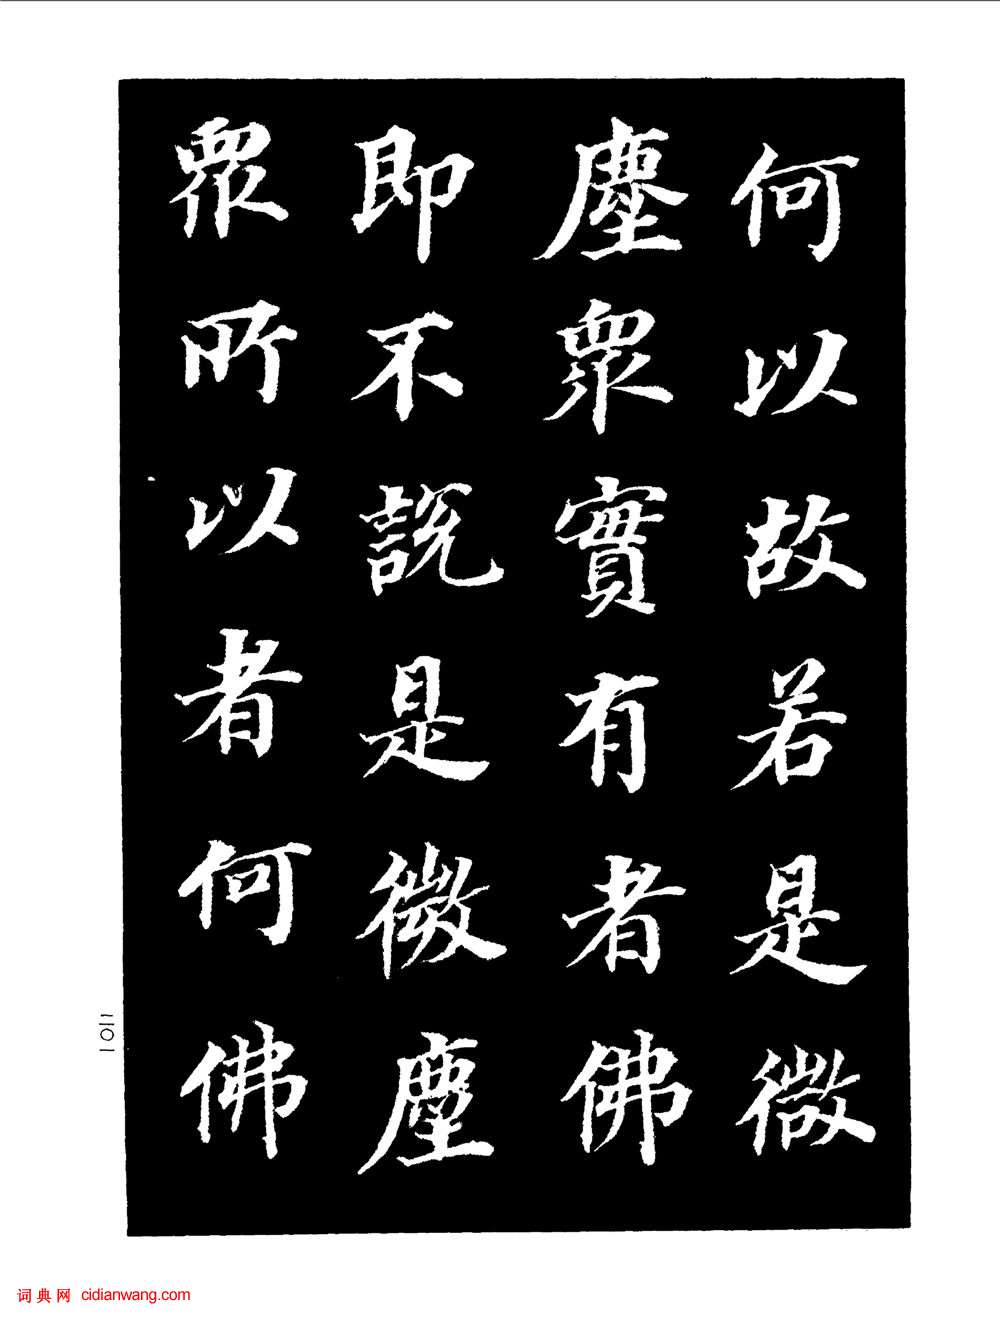 何以故若是微
塵眾實有者佛
即不說是微塵
眾所以者何佛
二〇一
词典网 cidianwang.com